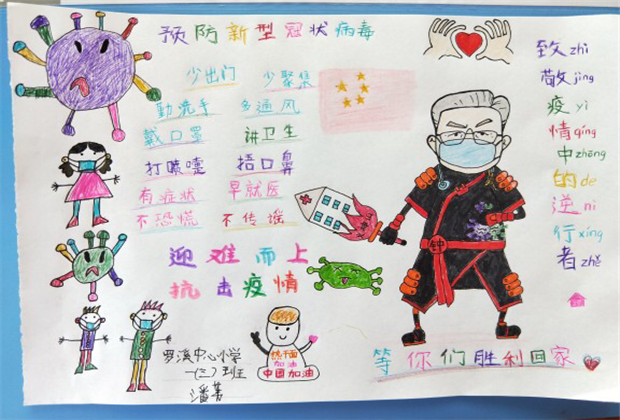 预防新型冠状病毒
少出门 少聚集
勤洗手 多通风
戴口罩 讲卫生
打喷嚏 捂口鼻
有症状 早就医
不恐慌 不传谣
迎难而上
抗击疫情
罗溪中心小学
一(二)班
潘菁
热干面
加油
中国加油
钟
致 zhì
敬 jìng
疫 yì
情 qíng
中 zhōng
的 de
逆 nì
行 xíng
者 zhě
等你们胜利回家